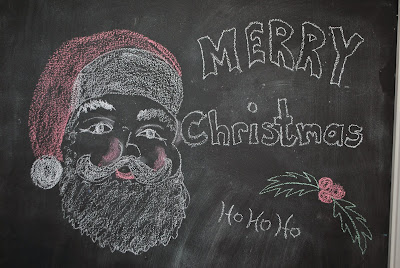 MERRY
Christmas
HO HO HO